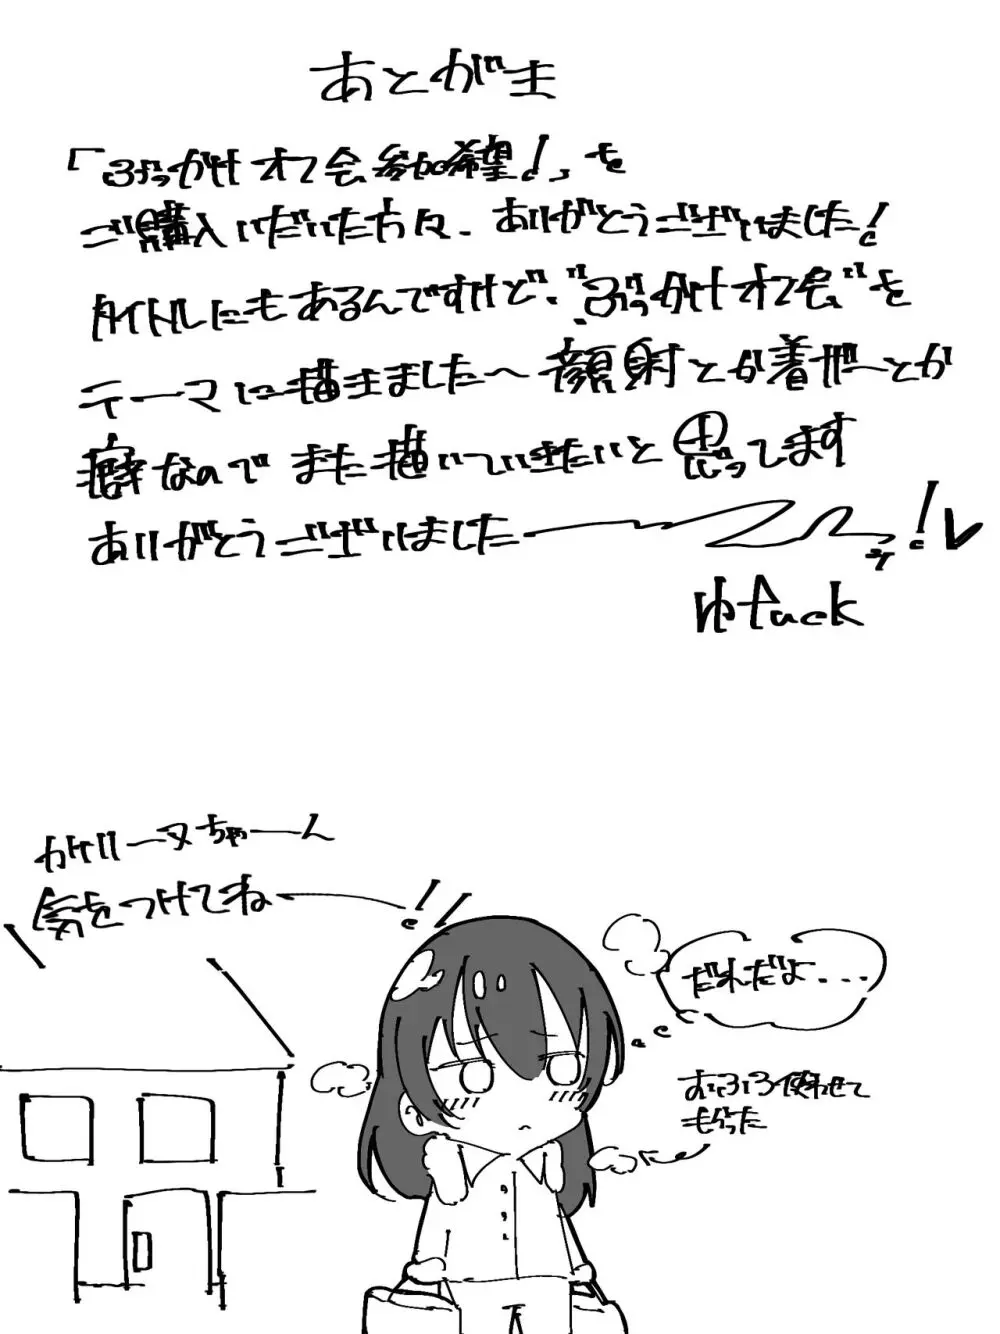 あとがき
「ぶっかけオフ会参加希望!」を
ご購入いただいた方々、ありがとうございました!
タイトルにもあるんですけど、"ぶっかけオフ会"を
テーマに描きました〜顔射とか着ザーとか
癖なのでまた描いていきたいと思ってます
ありがとうございました!
ゆfuck
ガリーヌちゃーん
気をつけてねー!!
だれだよ...
おふろ使わせて
もらった